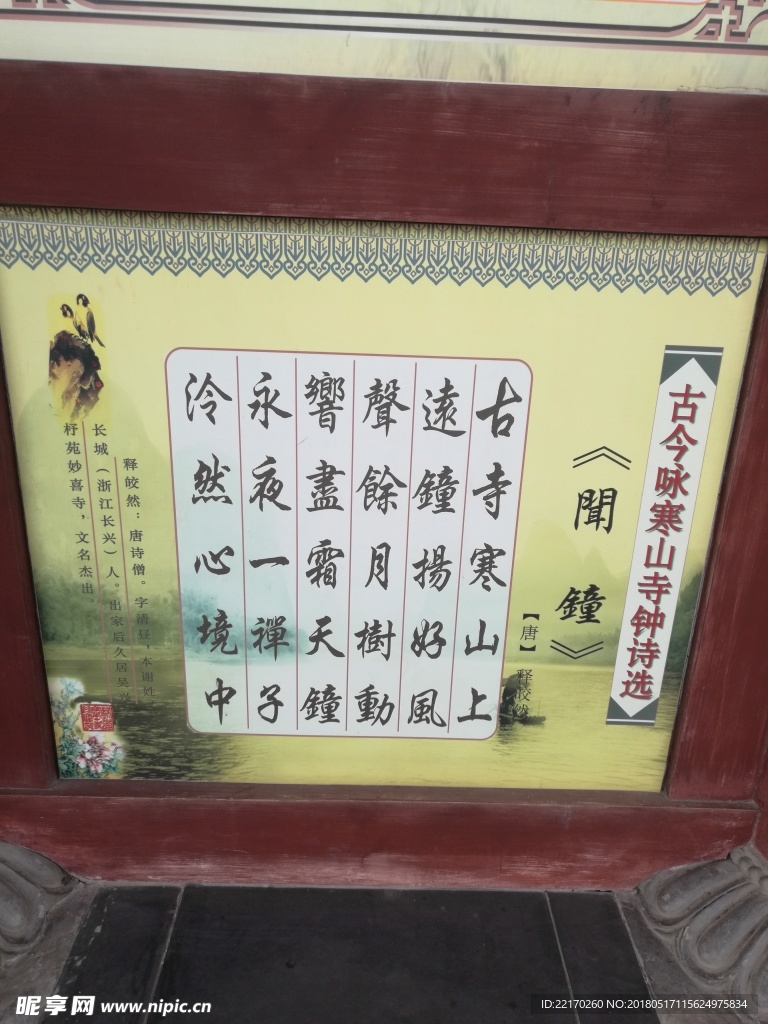 古今咏寒山寺钟诗选
《聞鐘》
【唐】释皎然
古寺寒山上
遠鐘揚好風
聲餘月樹動
響盡霜天鐘
永夜一禪子
泠然心境中
释皎然：唐诗僧。字清昼，本谢姓
长城（浙江长兴）人。出家后久居吴兴
杼苑妙喜寺，文名杰出。
昵享网 www.nipic.cn
ID:22170260 NO:20180517115624975834